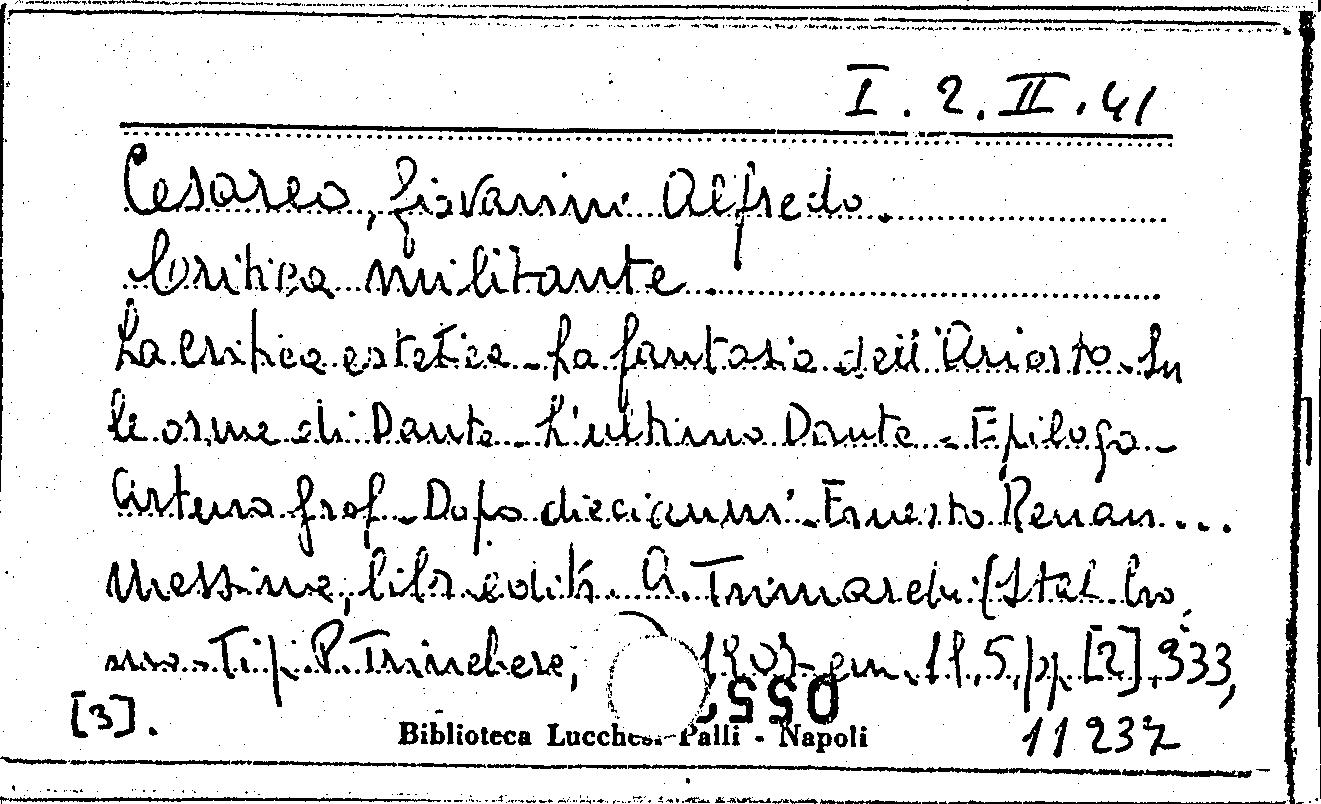 I. 2. II. 41
Cesareo, Giovanni Alfredo.
Critica militante.
La critica estetica - La fantasia dell'Ariosto - Su
le orme di Dante - L'ultimo Dante - Epilogo -
Arturo Graf - Dopo dieci anni - Ernesto Renan...
Messina, libr. edit. A. Trimarchi (Stab. Cro
mo-Tip. P. Trinchera, 1907 cm. 18,5, pp. [2], 333,
[3].
055
Biblioteca Lucchesi Palli - Napoli
11237